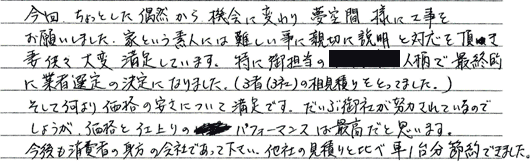 今回 ちょっとした偶然から 機会に変わり 夢空間 様に工事を
お願いしました. 家という素人には 難しい事に親切に説明と対応を頂き
妻供々 大変 満足しています. 特に御担当の 人柄で 最終的
に業者選定の決定になりました. (3者(3社)の相見積りをとってました.)
そして何より 価格の安さについて 満足です. だいぶ御社が努力されているので
しょうが、価格と仕上りの パフォーマンスは最高だと思います.
今後も消費者の身分の会社であって下さい. 他社の見積りと比べ 車1台分 節約できました.